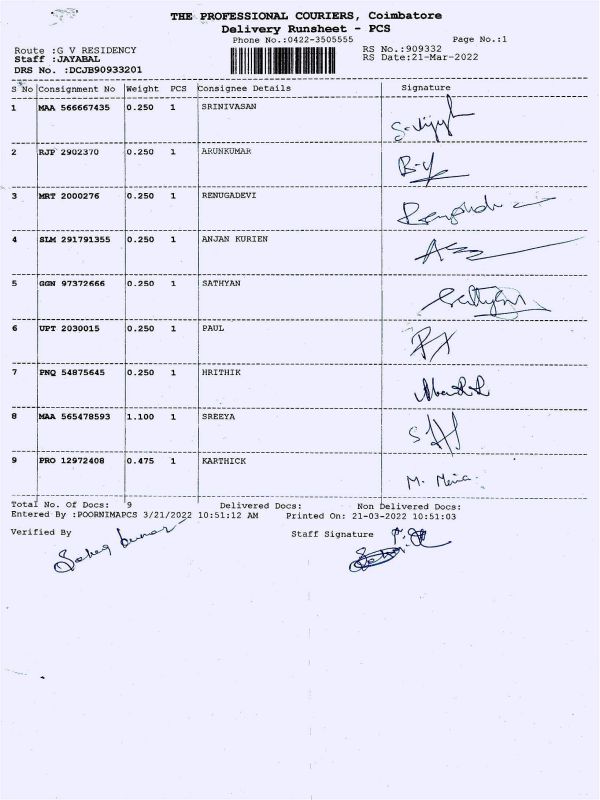 THE PROFESSIONAL COURIERS, Coimbatore
Delivery Runsheet - PCS
Phone No.:0422-3505555 Page No.:1
Route :G V RESIDENCY RS No.:909332
Staff :JAYABAL RS Date:21-Mar-2022
DRS No. :DCJB90933201
S No Consignment No Weight PCS Consignee Details Signature
1 MAA 566667435 0.250 1 SRINIVASAN
2 RJP 2902370 0.250 1 ARUNKUMAR
3 MRT 2000276 0.250 1 RENUGADEVI
4 SLM 291791355 0.250 1 ANJAN KURIEN
5 GGN 97372666 0.250 1 SATHYAN
6 UPT 2030015 0.250 1 PAUL
7 PNQ 54875645 0.250 1 HRITHIK
8 MAA 565478593 1.100 1 SREEYA
9 PRO 12972408 0.475 1 KARTHICK
Total No. Of Docs: 9 Delivered Docs: Non Delivered Docs:
Entered By :POORNIMAPCS 3/21/2022 10:51:12 AM Printed On: 21-03-2022 10:51:03
Verified By Staff Signature